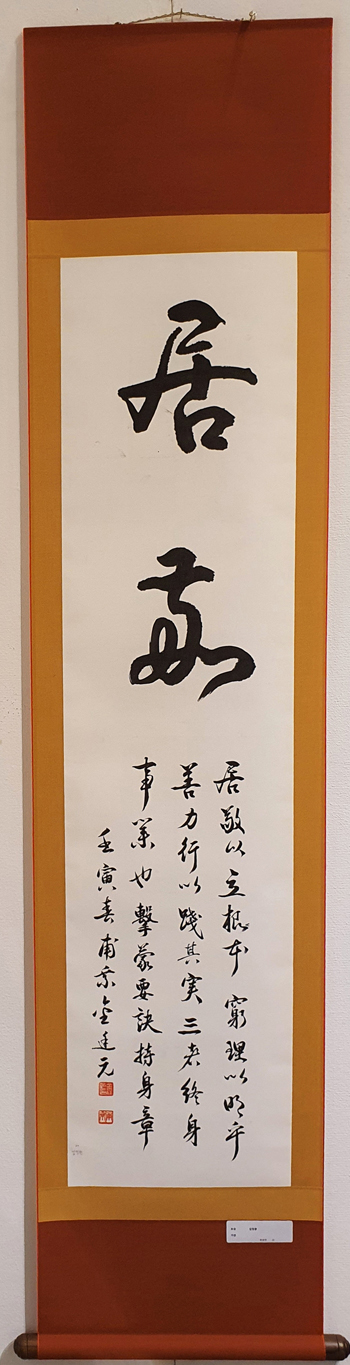 居敬
居敬以立根本 窮理以明乎
善力行以踐其実三者終身
事業也擊蒙要訣持身章
壬寅春甫京金廷元